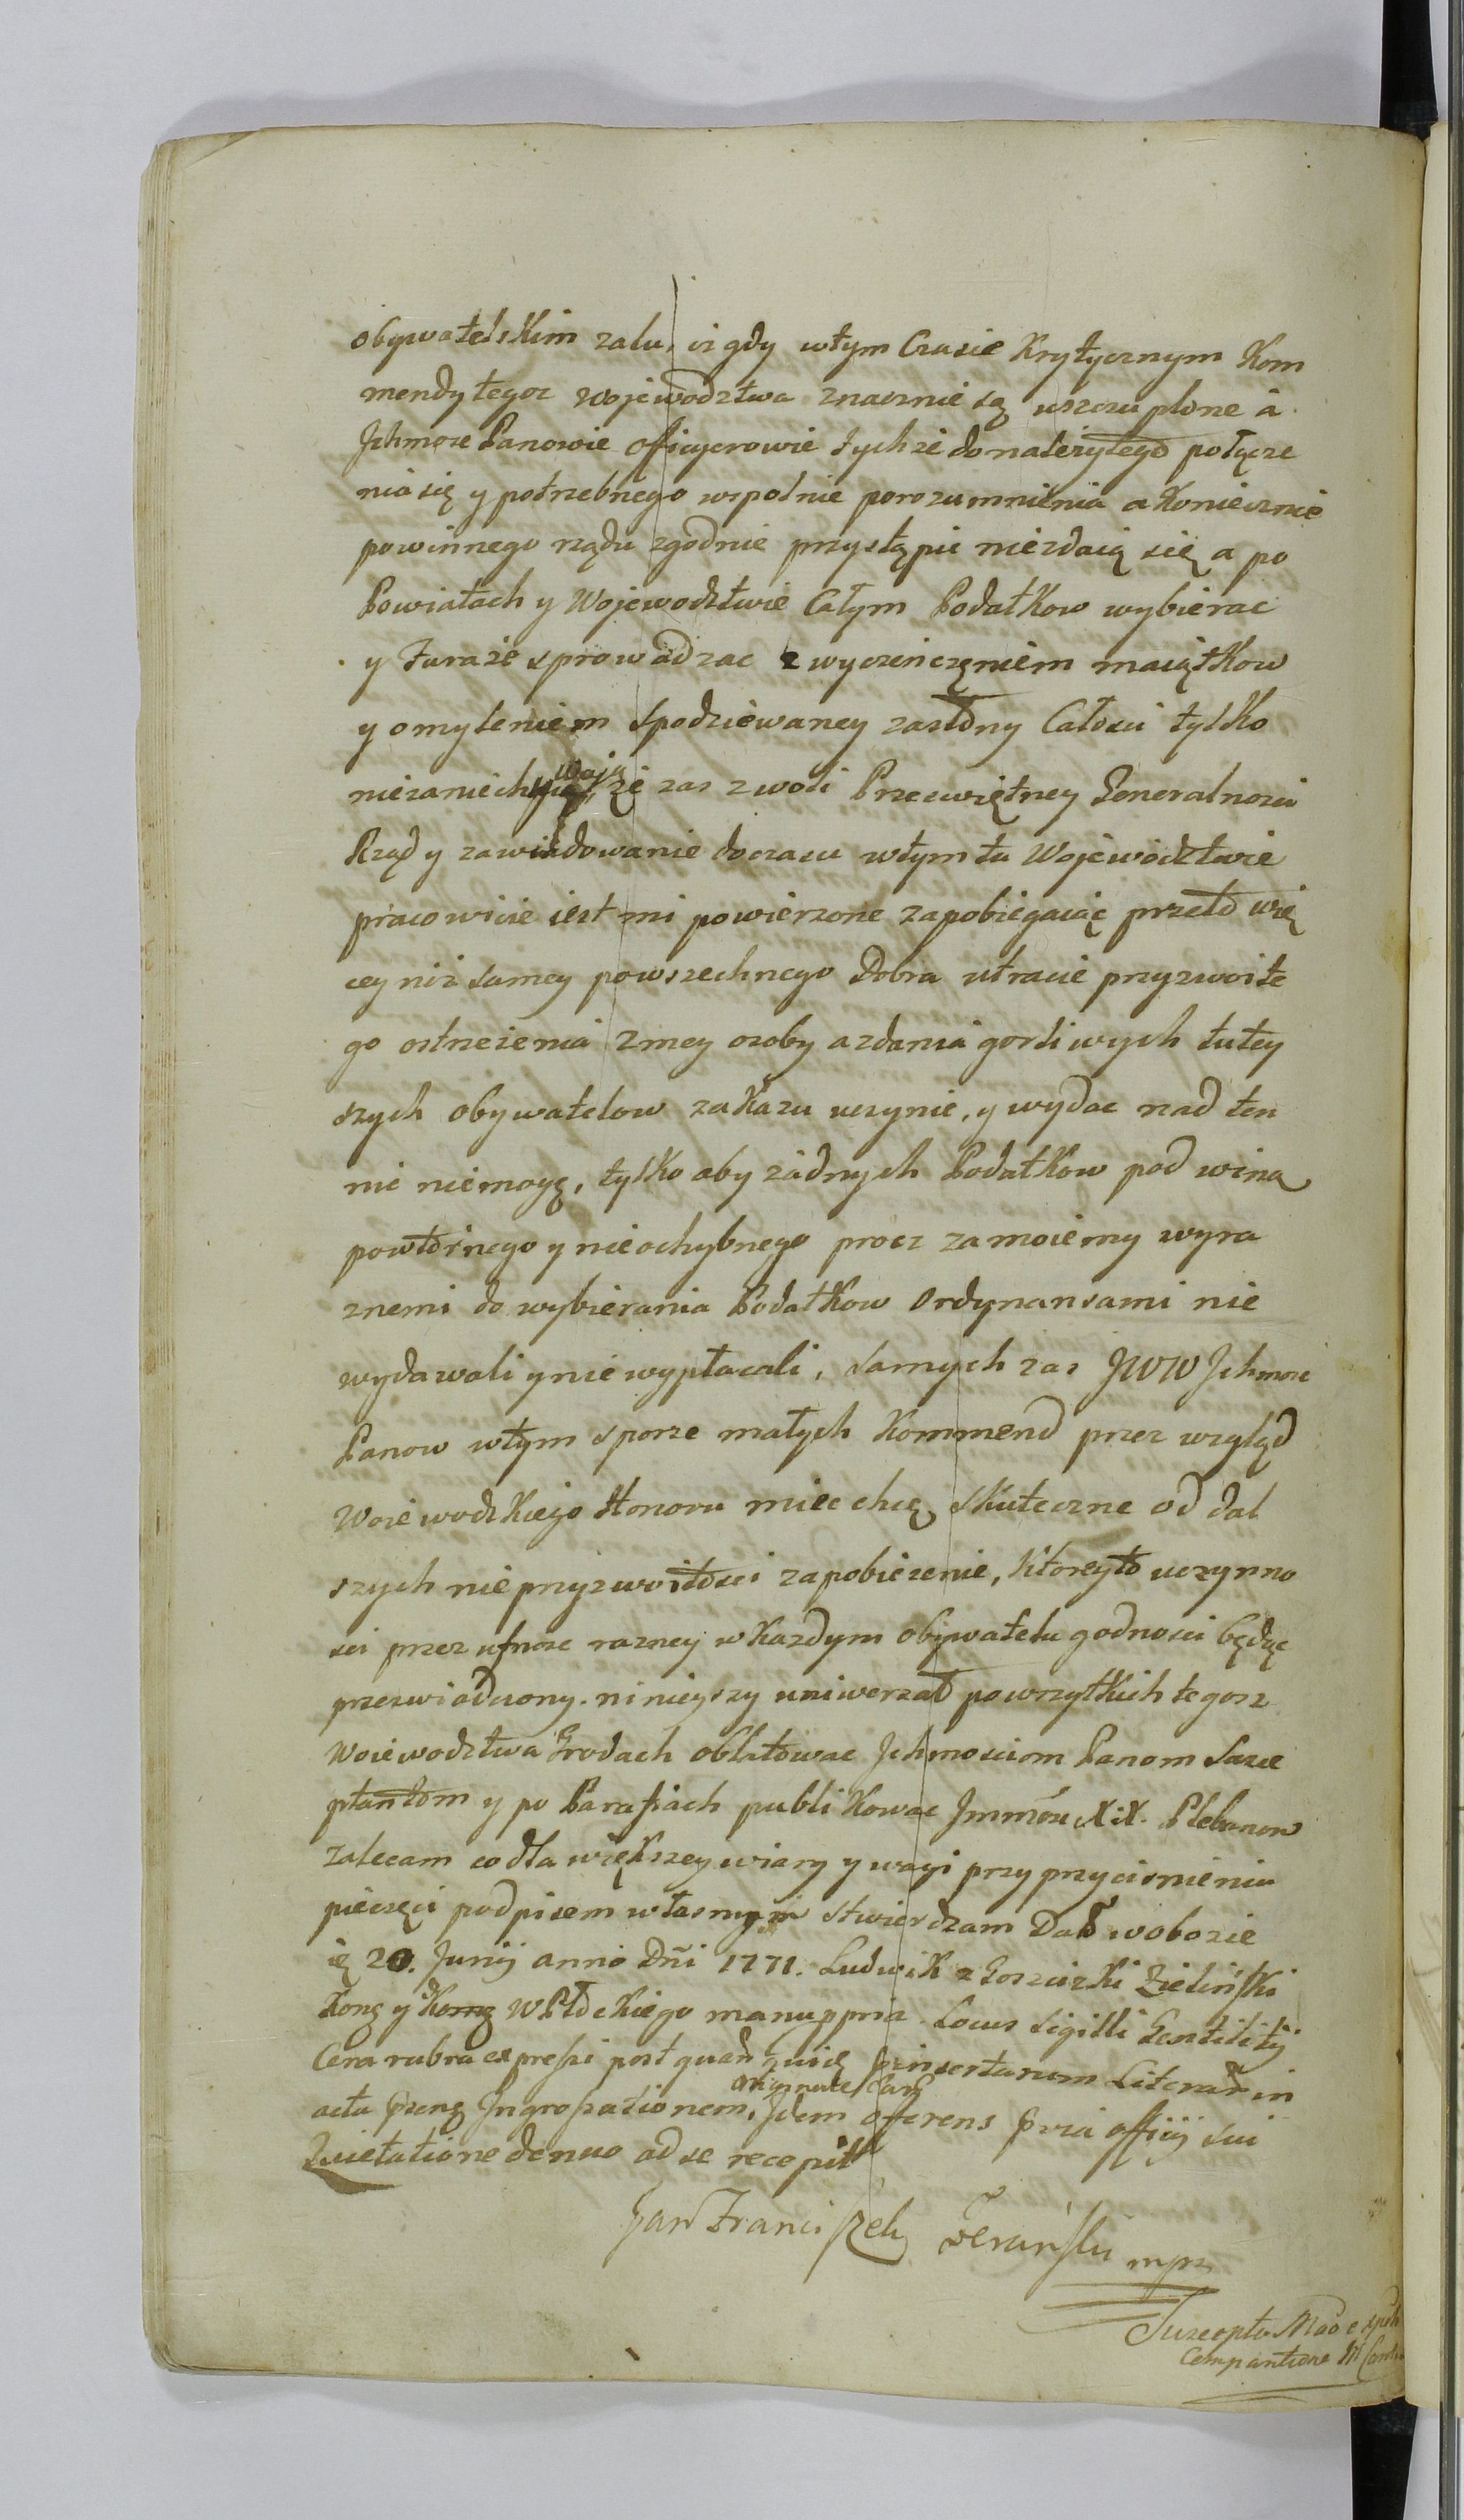 obywatelskim zalu, iz gdy wtym Czasie Krytycznym Kom
mendy tegoz wojewodztwa znacznie są uszczuplone a
Jchmosc Panowie officyerowie tychże do należytego połącze
nia się y potrzebnego wspolnie porozumnienia a Koniecznie
powinnego rządu zgodnie przystąpic niezdaią się a po
Powiatach y Wojewodztwie Całym Podatkow wybierac
y Furaże sprowadzac z wyczenczęniem maiątkow
y omyleniem Spodziewaney zasłony Całosci tylko
niezaniechywaią, że zas z woli Przeswiętney Generalnosci
Rząd y zawiadowanie doczasu wtym tu Wojewodztwie
pracowicie iest mi powierzone zapobiegaiąc przeto wię
cey niż samey powszechnego Dobra utracie przyzwoite
go ostrzeżenia z mey osoby a zdania gorliwych tutey
szych obywatelow zakazu uczynic, y wydac nad ten
nie niemogę, tylko aby żadnych Podatkow pod winą
powtornego y nieochybnego procz za moiemy wyra
znemi do wybierania Podatkow Ordynansami nie
wydawali y nie wypłacali, samych zas JWW Jchmosc
Panow wtym sporze małych Kommend przez wzgląd
Woiewodzkiego Honoru miec chcę Skuteczne od dal
szych nieprzyzwoitosci zapobieżenie, Ktoreyto uczynno
sci przez ufnosc razney w Kazdym obywatelu godnosci będąc
przeswiadczony. ninieyszy uniwerzał powszytkich tegosz
Woiewodztwa Grodach oblatowac Jchmosciom Panom Susce
ptantom y po Parafiach publikowac Jmmów XX. Plebanow
zalecam co dla większey wiary y wagi przy przycisnieniu
pieczęci podpisem własnym stwierdzam Dat w obozie
ię 20. Junij anno Dñi 1771. Ludwik z Goscizki Zieliński
Kong y Komg WPłockiego manuppria. Locus Sigilli Gentilitij
Cera rubra expressi post quam insertarum Literar̃ in
acta Ingrossationem, Originale Idem offerens officij sui
Quietatione denuo ad se recepit
Jan Franciszek mpr
Suscepta